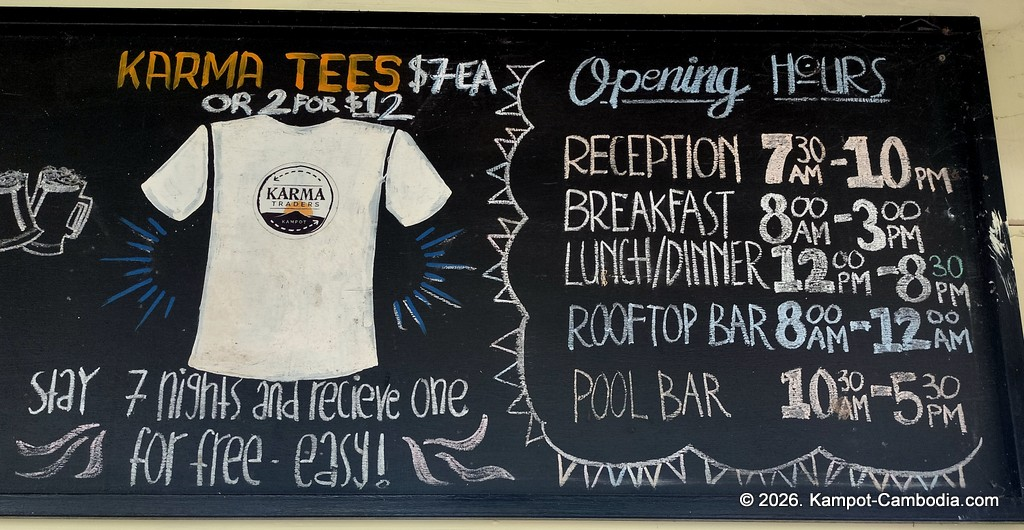 KARMA TEES $7 EA
OR 2 FOR $12
KARMA
TRADERS
KAMPOT
stay 7 nights and recieve one
for free - easy!
Opening HOURS
RECEPTION 7 30 AM - 10 PM
BREAKFAST 8 00 AM - 3 00 PM
LUNCH/DINNER 12 00 PM - 8 30 PM
ROOFTOP BAR 8 00 AM - 12 00 AM
POOL BAR 10 30 AM - 5 30 PM
© 2026. Kampot-Cambodia.com